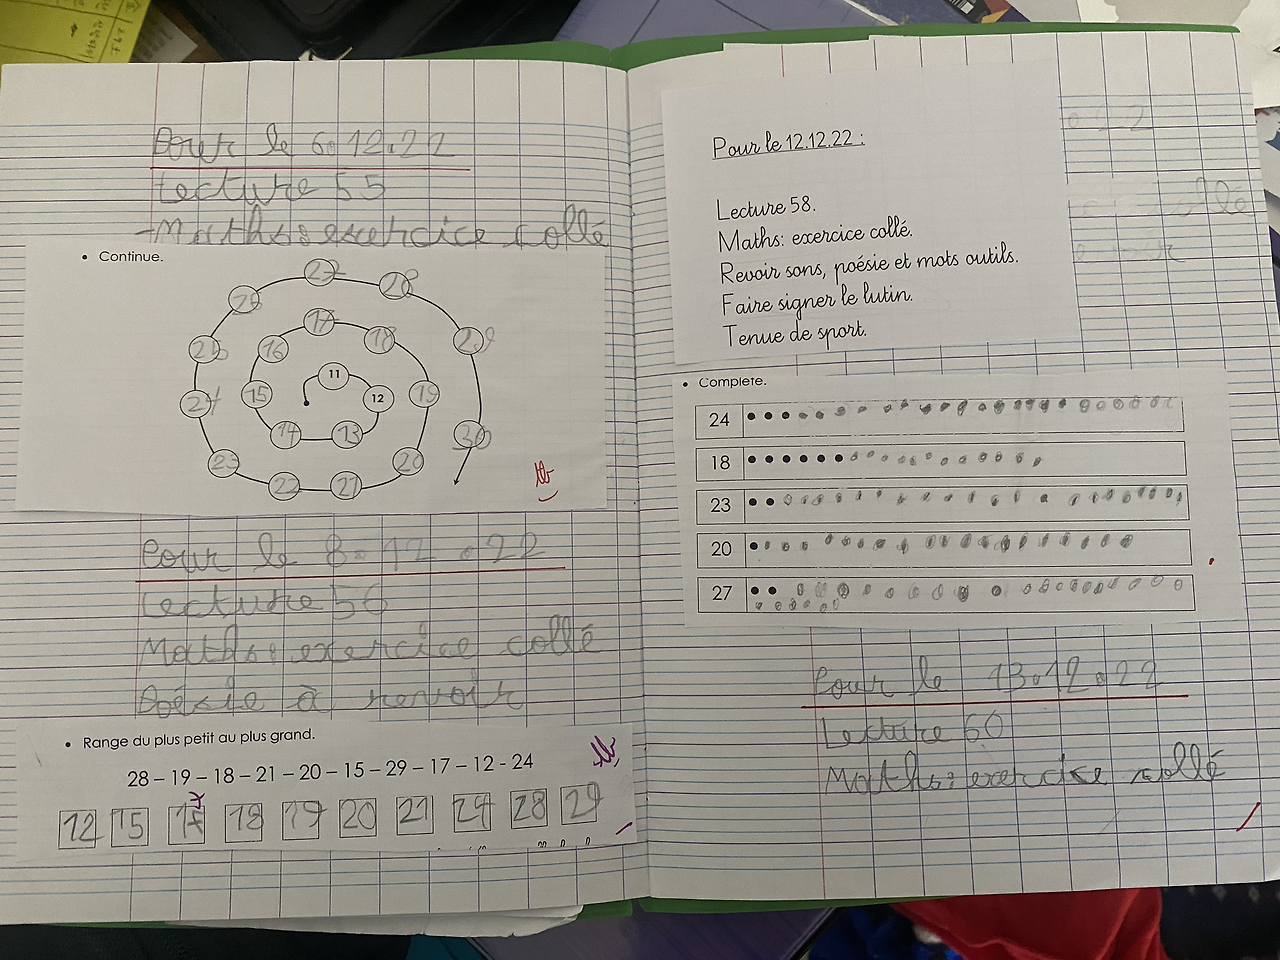 Pour le 6.12.22
Lecture 55
-Maths: exercice collé
• Continue.
27
28
26
29
17
18
25
16
11
12
19
24
15
14
13
30
23
20
22
21
tb
Pour le 8.12.22
Lecture 56
Maths: exercice collé
Poésie à revoir
• Range du plus petit au plus grand.
28 – 19 – 18 – 21 – 20 – 15 – 29 – 17 – 12 – 24
tb
12 15 17 18 19 20 21 24 28 29
Pour le 12.12.22 :
Lecture 58.
Maths: exercice collé.
Revoir sons, poésie et mots outils.
Faire signer le lutin.
Tenue de sport.
• Complète.
24
18
23
20
27
Pour le 13.12.22
Lecture 60
Maths: exercice collé